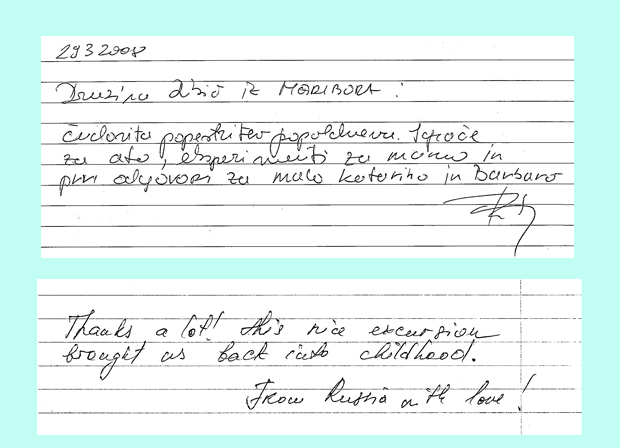 29 3 2008
Družina iz MARIBORA :
čudovita popestritev popoldneva. Igrače
za ato, eksperimenti za mamo in
prvi odgovori za malo Katarino in Barbaro
Thanks a lot! this nice excursion
brought us back into childhood.
From Russia with love!